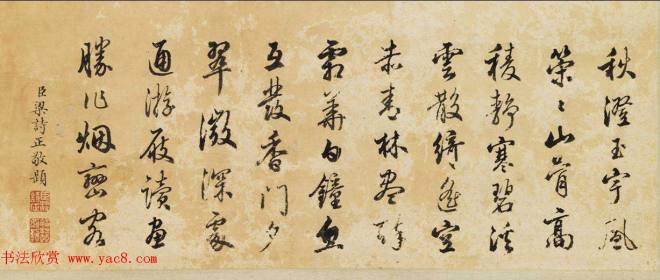 秋澄玉宇風
策々山骨高
稜靜寒碧溪
雲散綺遙空
赤青林盡醉
霜華白鐘魚
互發香門夕
翠微深處
通游屐讀畫
勝作烟巒客
臣梁詩正敬題
书法欣赏 www.yac8.com